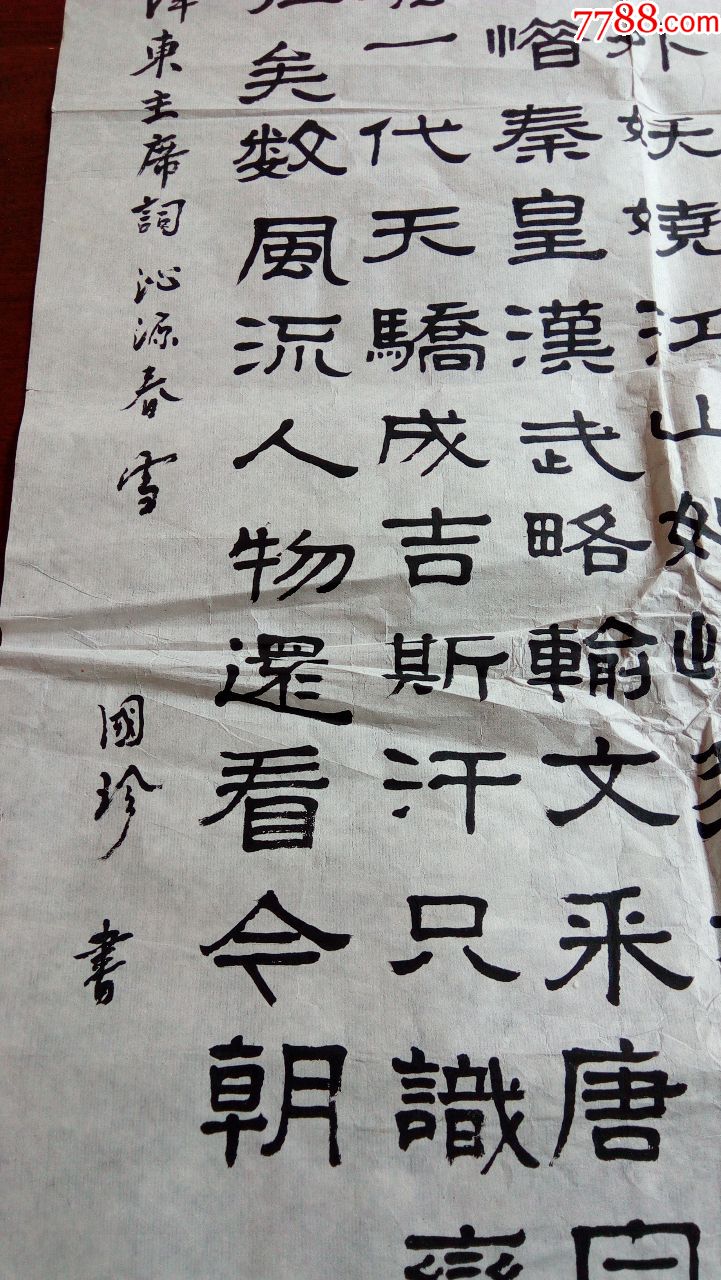 7788.com
外妖嬈江山如此多
惜秦皇漢武略輸文采唐
一代天驕成吉斯汗只識
矣数風流人物還看今朝
澤東主席詞 沁源春 雪 國珍 書